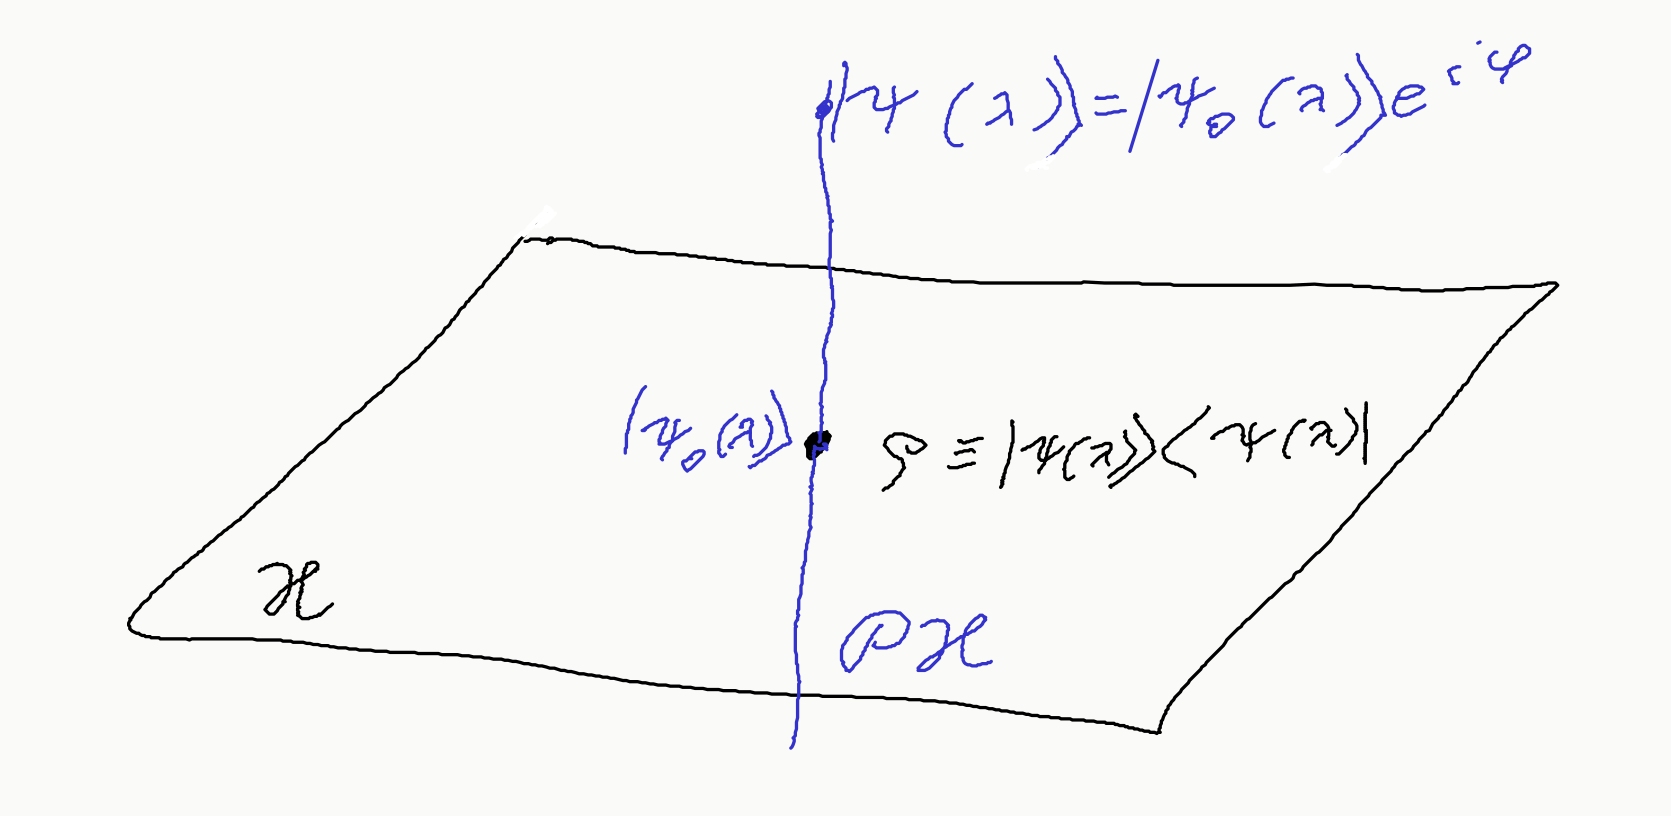 |ψ(λ)⟩=|ψ₀(λ)⟩e^{iφ}
|ψ₀(λ)⟩ ρ ≡ |ψ(λ)⟩⟨ψ(λ)|
ℋ
𝒫ℋ